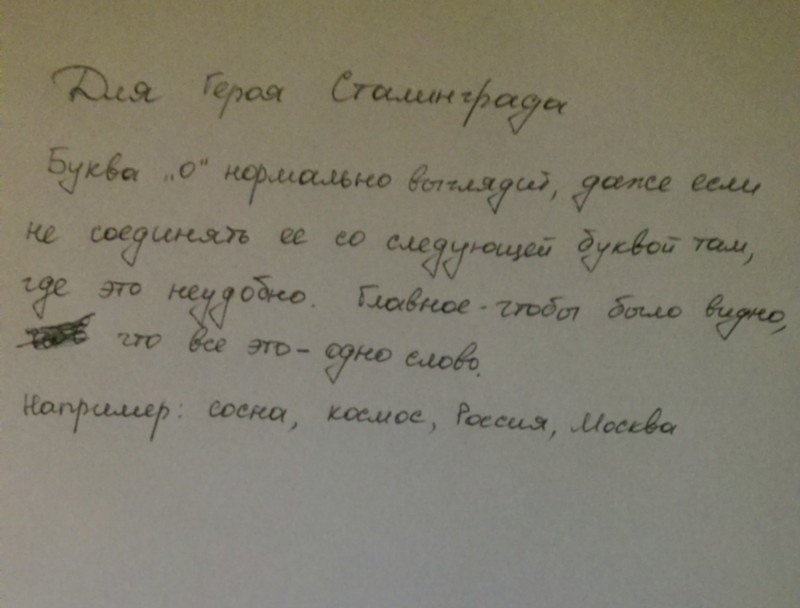 Для Героя Сталинграда
Буква „о“ нормально выглядит, даже если
не соединять ее со следующей буквой там,
где это неудобно. Главное - чтобы было видно,
что все это - одно слово.
Например: сосна, космос, Россия, Москва